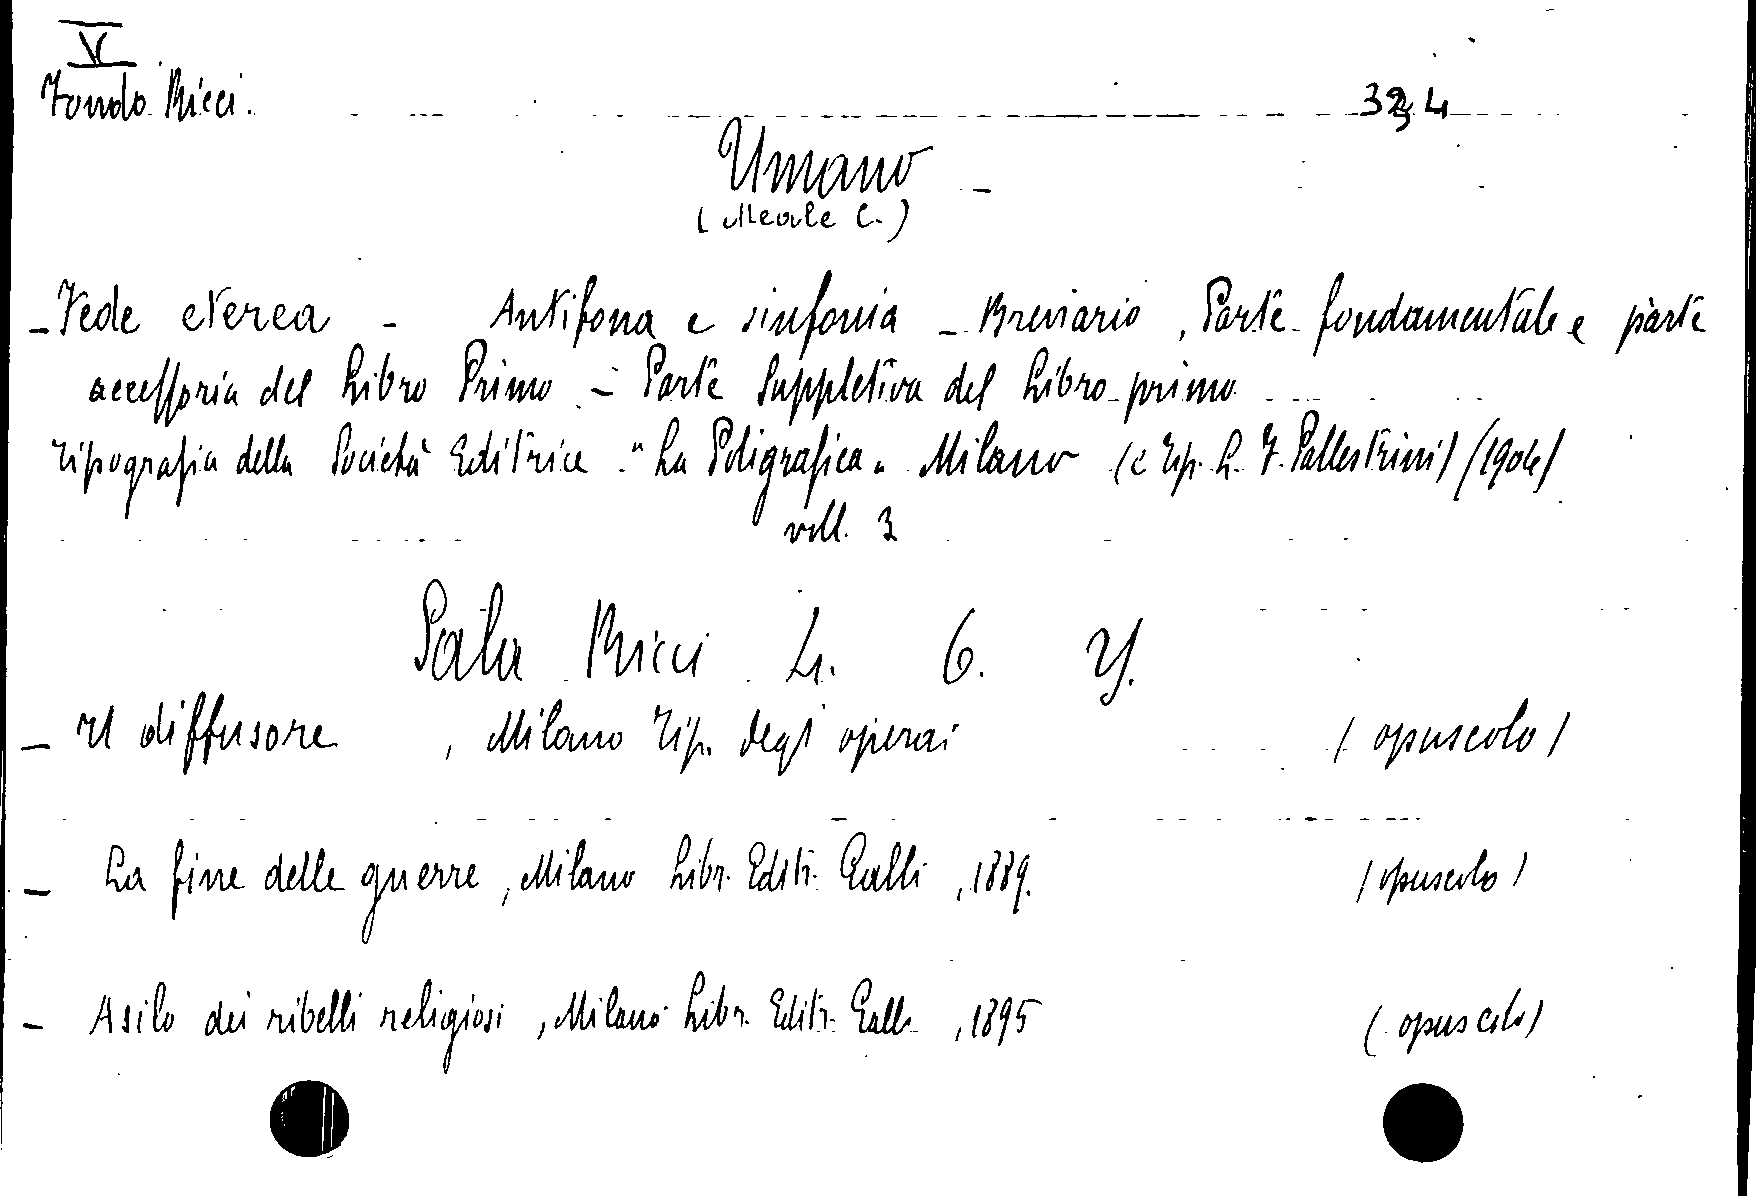 V
Fondo Ricci. 334
Umano -
(Meale C.)
- Fede eterea - Antifona e sinfonia - Breviario, Parte fondamentale e parte
accessoria del Libro Primo - Parte Suppletiva del Libro primo
Tipografia della Società Editrice "La Poligrafica" Milano (e Tip. L. F. Pallestrini) (1904)
voll. 3
Sala Ricci L. 6. Y.
- Il diffusore, Milano Tip. degl' operai (opuscolo)
- La fine delle guerre, Milano Libr. Editr. Galli, 1889. (opuscolo)
- Asilo dei ribelli religiosi, Milano Libr. Editr. Galli, 1895 (opuscolo)